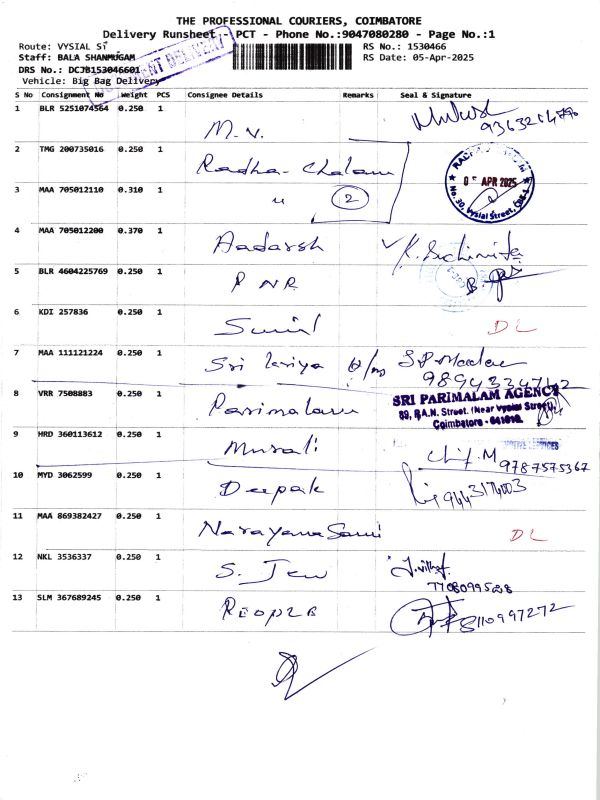 THE PROFESSIONAL COURIERS, COIMBATORE
Delivery Runsheet - PCT - Phone No.:9047080280 - Page No.:1
Route: VYSIAL ST
RS No.: 1530466
Staff: BALA SHANMUGAM
RS Date: 05-Apr-2025
DRS No.: DCJB153046601
Vehicle: Big Bag Delivery
S No Consignment No Weight PCS Consignee Details Remarks Seal & Signature
1 BLR 5251074564 0.250 1 M.V.
2 TMG 200735016 0.250 1 Radha-Chalam
05 APR 2025
No.30, Vysial Street, CBE-1
3 MAA 705012110 0.310 1 " 2
4 MAA 705012200 0.370 1 Aadarsh
5 BLR 4604225769 0.250 1 PNR
6 KDI 257836 0.250 1 Sunil DL
7 MAA 111121224 0.250 1 Sri
8 VRR 7508883 0.250 1 Parimalam
SRI PARIMALAM AGENCY
89, R.A.N. Street, (Near Vysial Street)
Coimbatore - 641018.
9 HRD 360113612 0.250 1 Murali
9787575367
10 MYD 3062599 0.250 1 Deepak
11 MAA 869382427 0.250 1 Narayana Sami DL
12 NKL 3536337 0.250 1 S. Jew
7708099528
13 SLM 367689245 0.250 1 REOP2B 8110997272